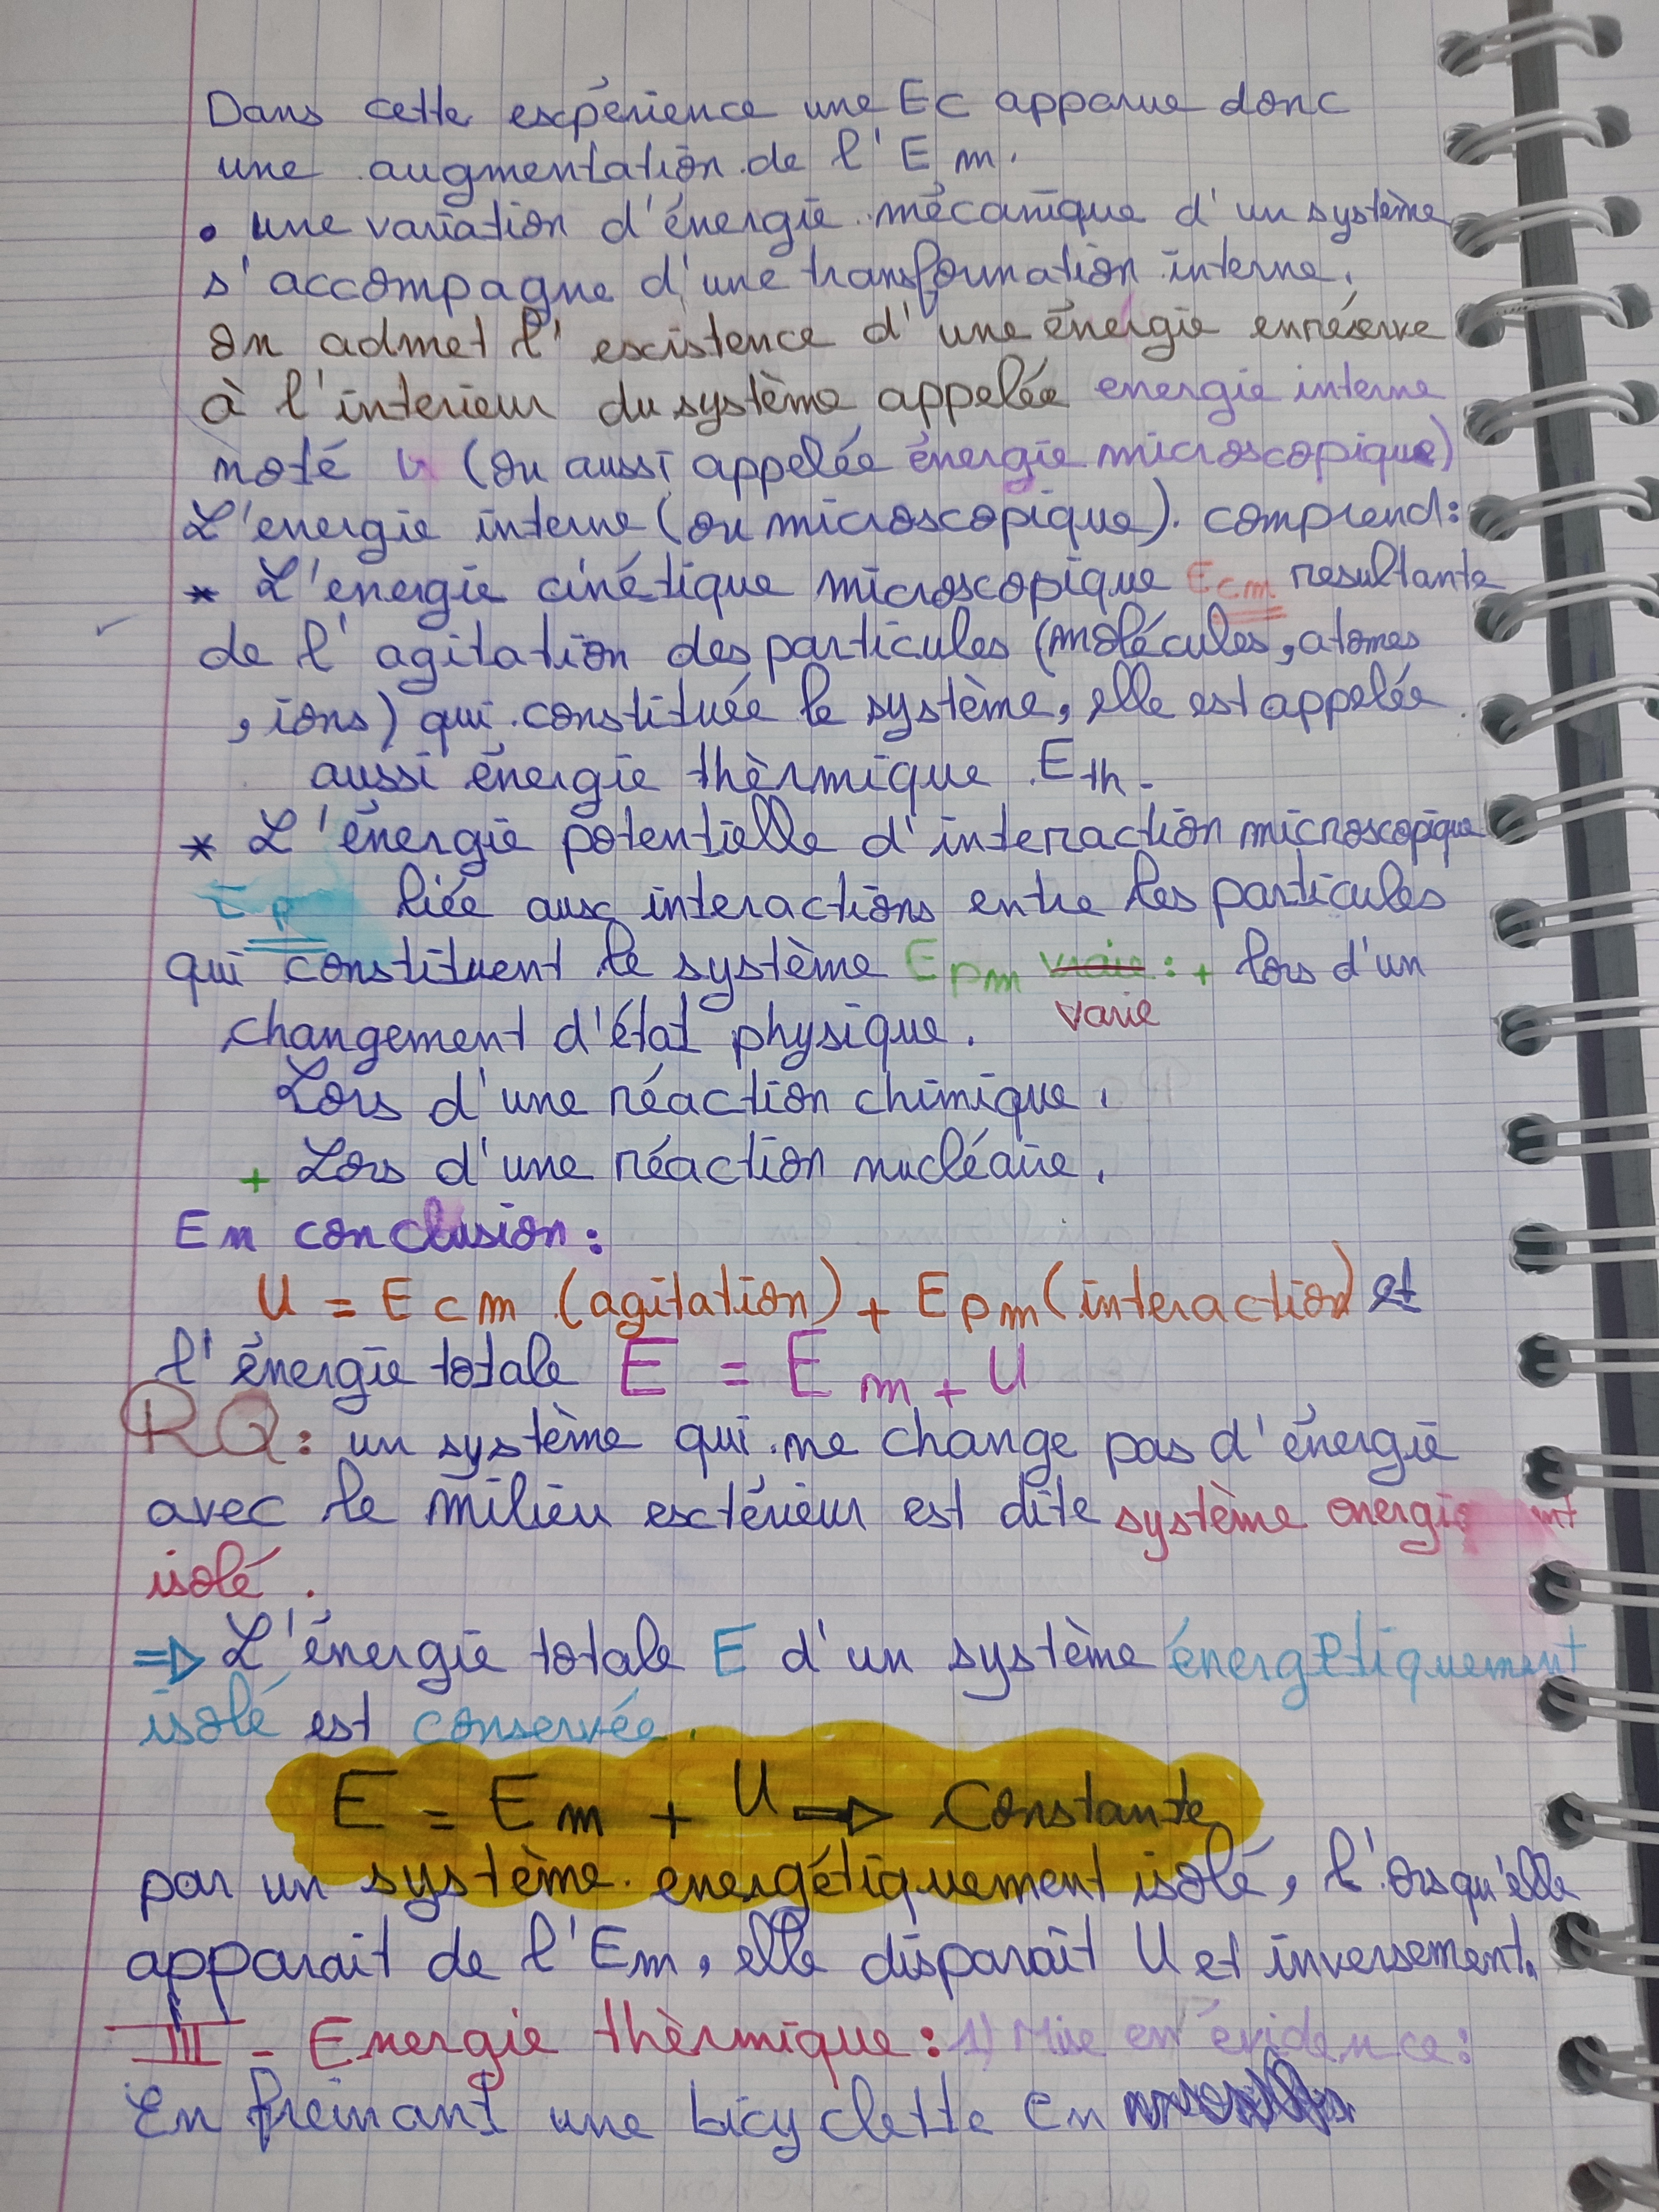 Dans cette expérience une Ec apparue donc
une augmentation de l'Em.
• une variation d'énergie mécanique d'un système
s'accompagne d'une transformation interne.
on admet l'existence d'une énergie enréserve
à l'interieur du système appelée energie interne
noté U (ou aussi appelée énergie microscopique)
L'energie interne (ou microscopique). comprend:
* L'energie cinétique microscopique Ecm resultante
de l'agitation des particules (molécules, atomes
, ions) qui constituée le système, elle est appelée
aussi énergie thèrmique Eth.
* L'énergie potentielle d'interaction microscopique
Ep liée aux interactions entre les particules
qui constituent le système Epm vraie : + lors d'un
varie
changement d'état physique.
Lors d'une réaction chimique.
+ Lors d'une réaction nucléaire.
En conclusion:
U = Ecm (agitation) + Epm (interaction) et
l'énergie totale E = Em + U
RQ: un système qui ne change pas d'énergie
avec le milieu extérieur est dite système
isolé.
⇒ L'énergie totale E d'un système énergétiquement
isolé est conservée.
E = Em + U ⇒ Constante
par un système energétiquement isolé, l'orsqu'elle
apparait de l'Em, elle disparaît U et inversement.
III - Energie thèrmique: 1) Mise en évidence:
En freinant une bicyclette en